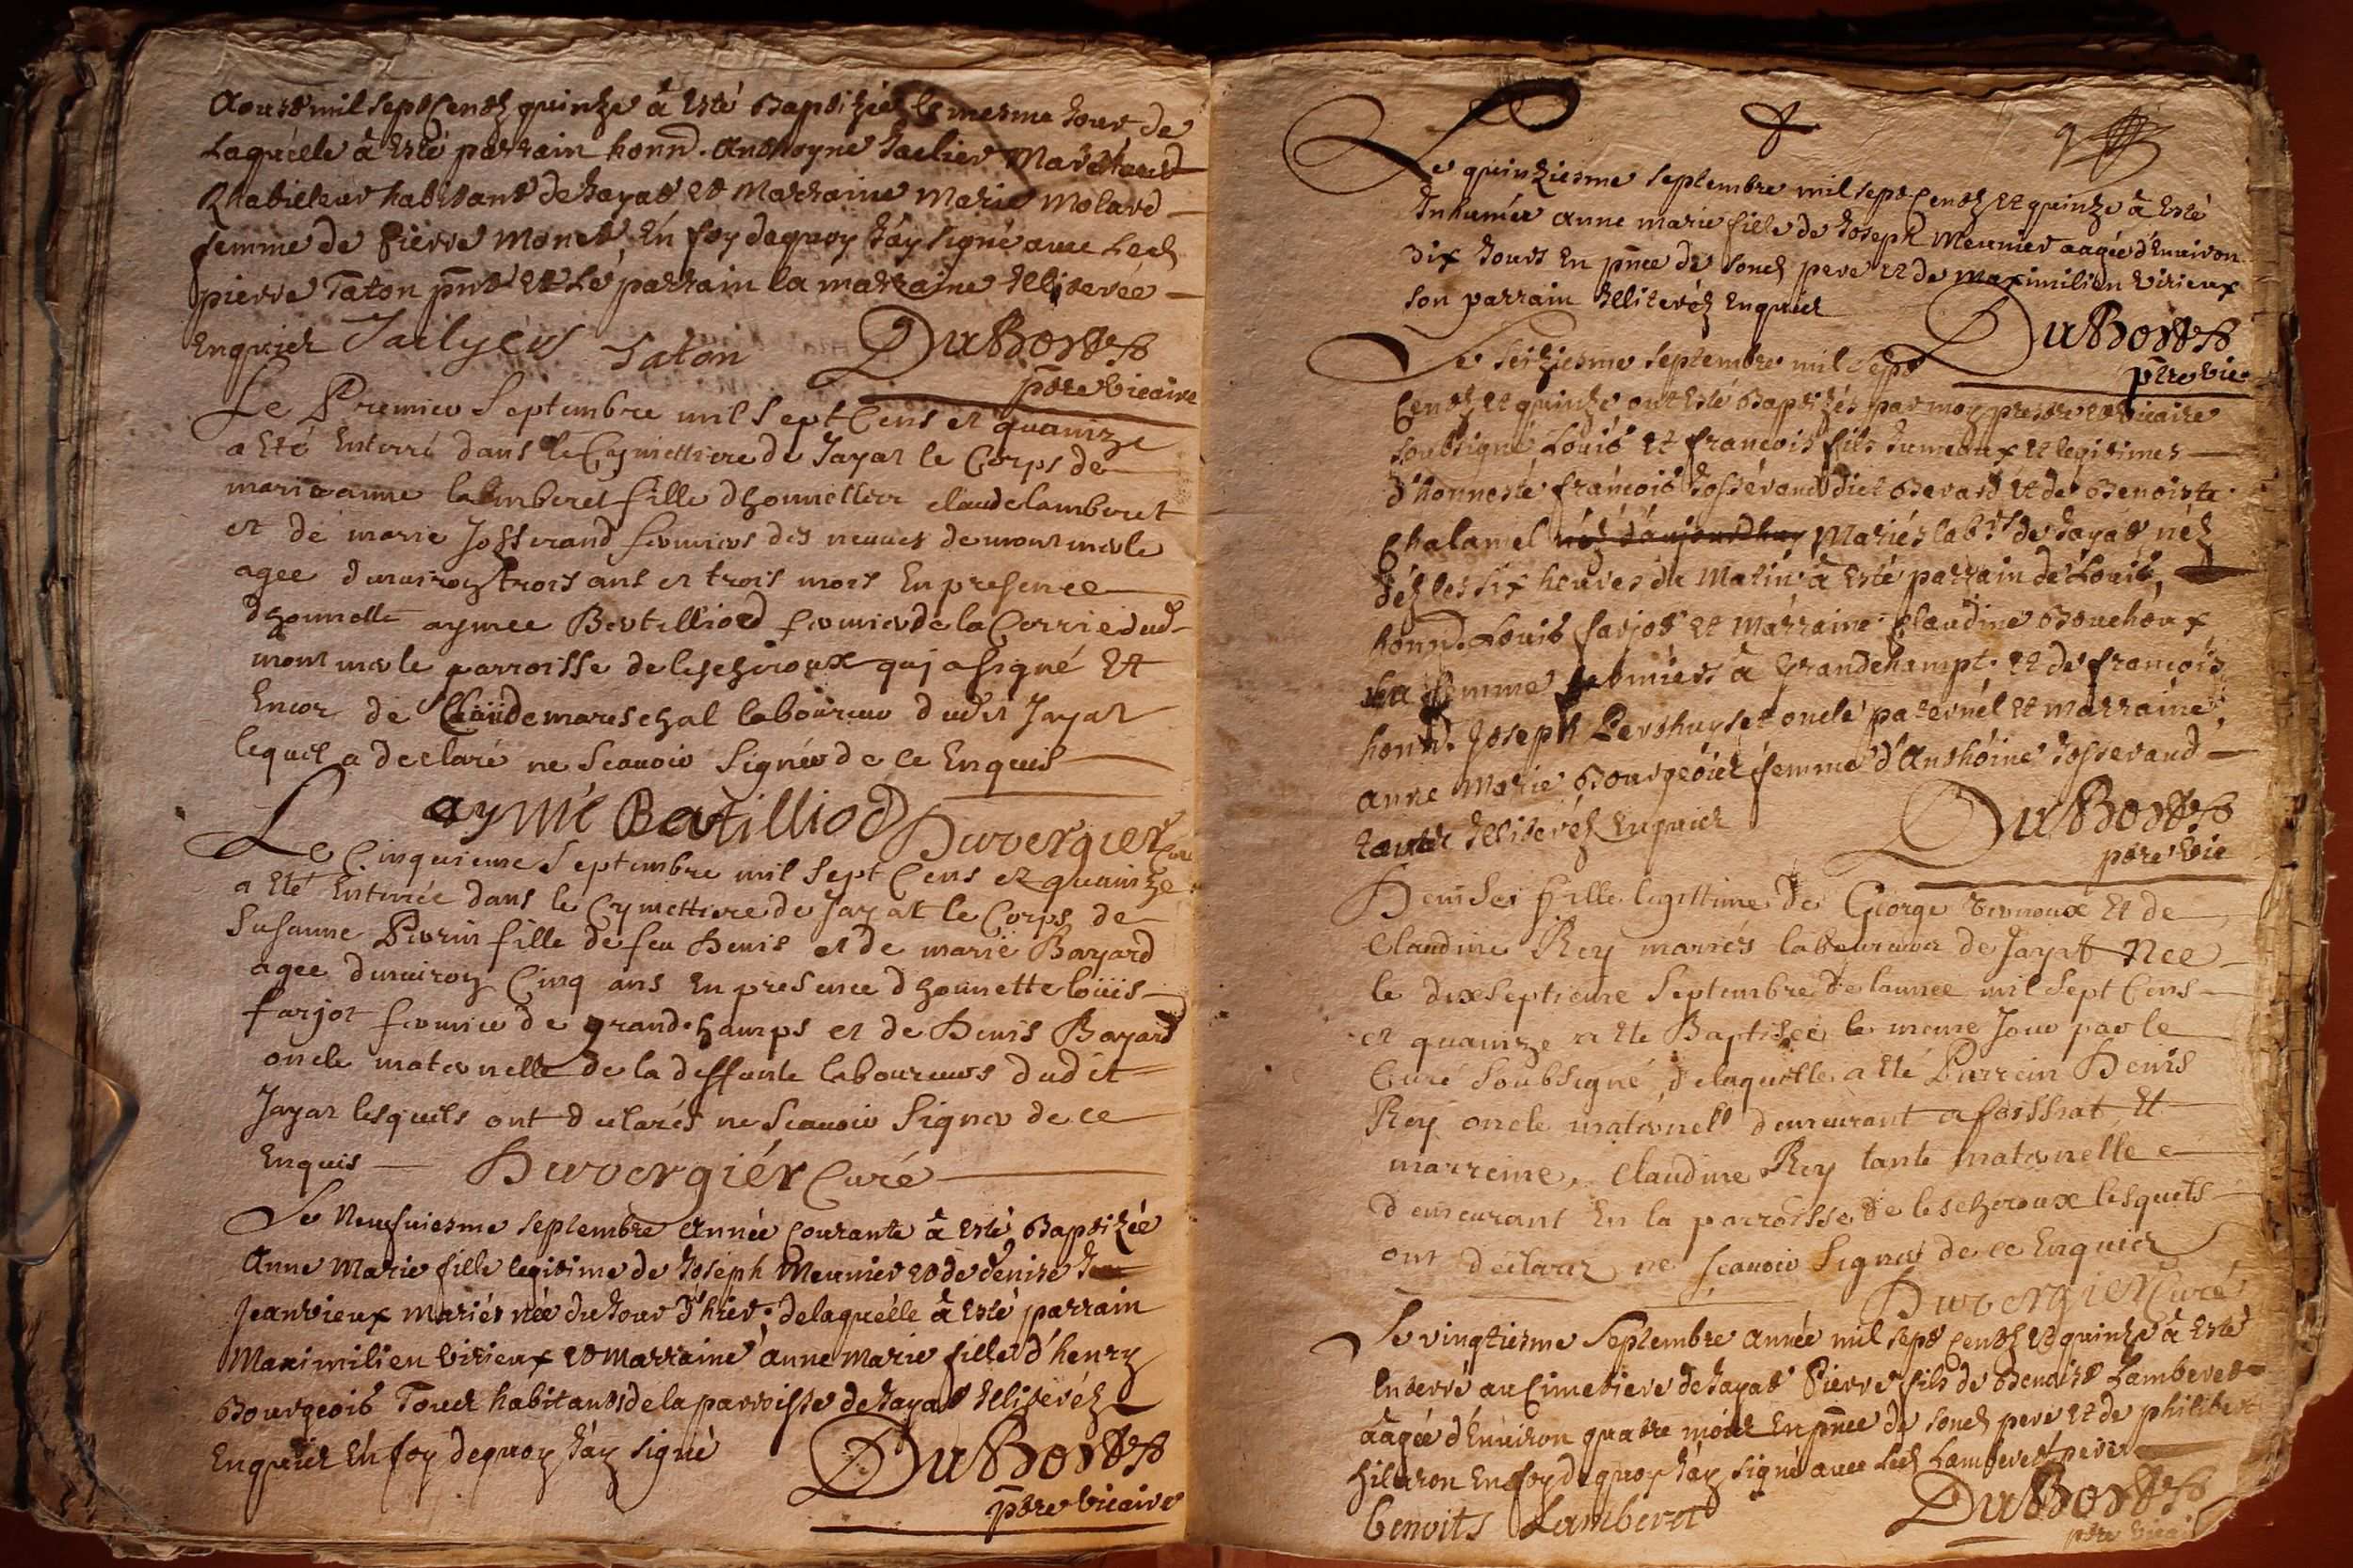 Aoust mil sept Centz quinze â Esté Baptizée le mesme Jour de
Laquélle â Esté parrain honn. Anthoyne Jaclier Maréchaud
Rhabilleur habitant de Jayat et Marraine Marie Molard
femme de Pierre Monet En foy dequoy J'áy signé avec Led.
pierre Taton pnt et Lé parrain la marraine Illiterée
Enquise Jaclyer Taton DuBost
ptre vicaire
Le Premier Septembre mil Sept Cens et quainze
a Eté Enterré dans le Cymettiere de Jayat le Corps de
marie anne lamberet fille dhonnette claude lamberet
et de marie Josserand fermiers des neuves de montmerle
agee denviron trois ans et trois mois En presence
dhonnette aymee Bertilliod fermier de la Verrie dud.
montmerle parroisse de lescheroux qui a signé Et
Encor de Claude mareschal laboureur dudit Jayat
lequel a declaré ne Scavoir Signer de ce Enquis
aymé Batilliod Duvergier Curé
Le Cinquieme Septembre mil Sept Cens et quainze
a Eté Enterrée dans le Cymettiere de Jayat le Corps de
Susanne Perrin fille de feu Denis et de marie Boyard
agee denviron Cinq ans En presence dhonnette loüis
farjot fermier de grandchamps et de Denis Boyard
oncle maternelle de la deffunte laboureurs dudit
Jayat lesquels ont declarés ne Scavoir Signer de ce
Enquis Duvergiér Curé
Le Neufviesme septembre Année Courante â Esté Baptizée
Anne Marie fille legitime de Joseph Meunier et de denise
Jeanvieux mariés née du Jour d'hier, de laquélle â Esté parrain
Maximilien virieux et marraine anne marie fille d'henry
Bourgeois Tous habitants de la parroisse de Jayat Illiteréz
Enquis En foy dequoy J'áy signé DuBost
ptre vicaire
Le quinziesme septembre mil sept Centz et quinze â Esté
Inhumée anne marie fille de Joseph Meunier aagée d'Environ
six Jours En pnce de sond. pere et de Maximilien virieux
son parrain Illiteréz Enquis DuBost
ptre vic.
Le seiziesme septembre mil sept
Centz et quinze ont Esté Baptizés par moy prestre et vicaire
soubsigné Louis et francois fils Jumeaux et legitimes
d'honnesté francois Josserand dict Berard et de Benoiste
Chalamel néz d'aujourdhuy Mariés lab.rs de Jayat néz
déz les six heures du Matin â Esté parrain de Louis,
honn. Louis farjot et Marraine claudine Bouchoux
sa femme fermiers â Grandchampt. et de francois
honn. Joseph Pershuyset oncle paternél et marraine
anne Marie Bourgeoise femme d'Anthoine Josserand
touts Illiteréz Enquis DuBost
ptre vic
Denise fille legittime de George vernoux Et de
Claudine Rey mariés laboureurs de Jayat Nee
le dixseptieme Septembre de lannee mil Sept Cens
et quainze a Ete Baptisée le meme Jour par le
Curé Soubsigné, de laquelle a Eté Parrein Denis
Rey oncle maternell demeurant a foissiat Et
marreine, Claudine Rey tante maternelle
demeurant En la parroisse de lescheroux lesquels
ont declarez ne scavoir Signer de ce Enquiez
Duvergier Curé
Le vingtiesme Septembre Année mil sept Centz et quinze â Esté
Enterré au Cimetiere de Jayat Pierre fils de Benoist Lamberet
âagée d'Environ quatre mois En pnce de sond. pere et de philibert
hilaron En foy dequoy J'áy signé avec led. Lamberet pere
Benoits Lamberet DuBost
ptre vicai